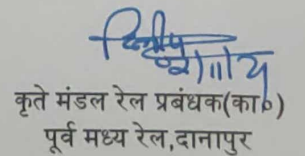 कृते मंडल रेल प्रबंधक(का०)
पूर्व मध्य रेल,दानापुर